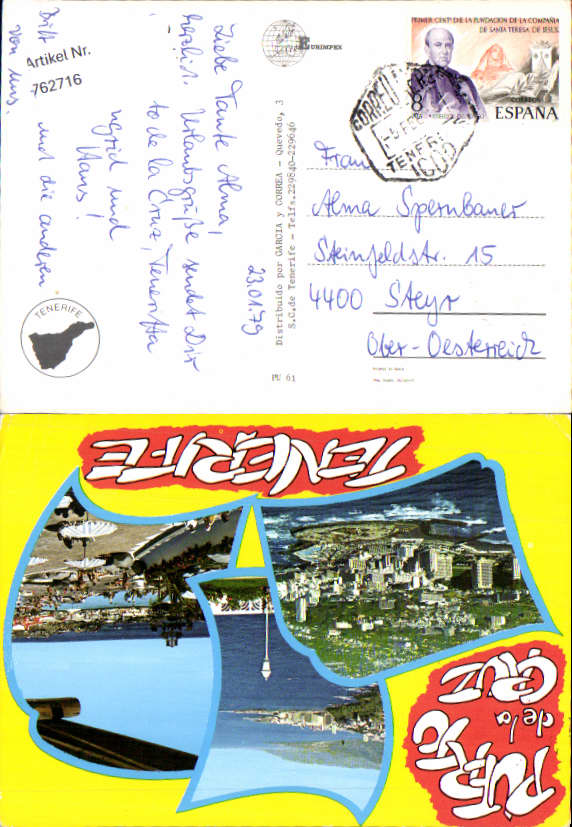 23.01.79
Liebe Tante Alma!
herzlich. Urlaubsgrüße sendet Dir
to de la Cruz, Teneriffa
ngrid und
Hans!
und die anderen
von uns.
Artikel Nr.
762716
TENERIFE
EURIMPEX
Distribuido por GARCIA y CORREA - Quevedo, 3
S.C.de Tenerife - Telfs.229840-229646
PU 61
PRIMER CENT. DE LA FUNDACION DE LA COMPAÑIA
DE SANTA TERESA DE JESUS
8
PTA
CORREOS
ESPAÑA
CORREO
TENERI
ICOD
Frau
Alma Spernbauer
Steinfeldstr. 15
4400 Steyr
Ober-Oesterreich
TENERIFE
PUERTO
de la
CRUZ